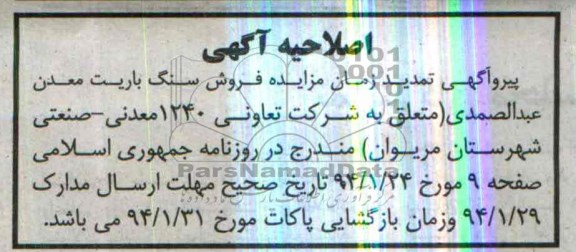 اصلاحیه آگهی
پیروآگهی تمدید زمان مزایده فروش سنگ باریت معدن
عبدالصمدی(متعلق به شرکت تعاونی ۱۲۴۰معدنی-صنعتی
شهرستان مریوان) مندرج در روزنامه جمهوری اسلامی
صفحه ۹ مورخ ۹۴/۱/۲۴ تاریخ صحیح مهلت ارسال مدارک
۹۴/۱/۲۹ وزمان بازگشایی پاکات مورخ ۹۴/۱/۳۱ می باشد.
ParsNamadData